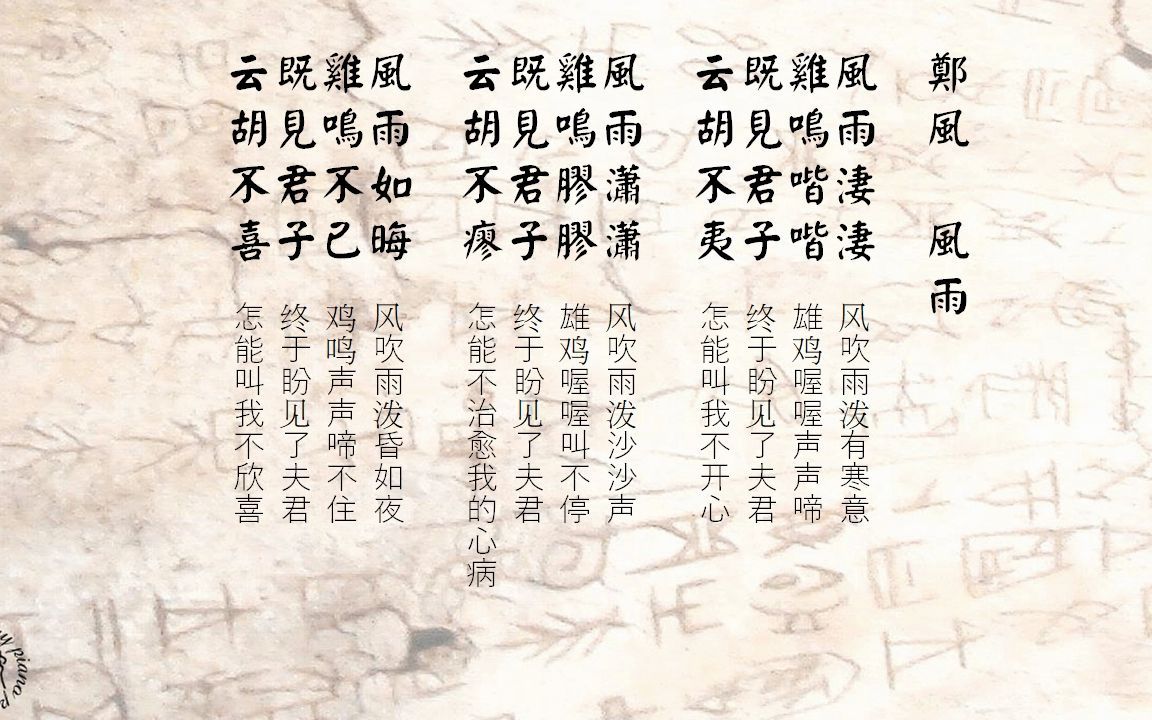 鄭風 風雨
風雨淒淒
雞鳴喈喈
既見君子
云胡不夷
风吹雨泼有寒意
雄鸡喔喔声声啼
终于盼见了夫君
怎能叫我不开心
風雨瀟瀟
雞鳴膠膠
既見君子
云胡不瘳
风吹雨泼沙沙声
雄鸡喔喔叫不停
终于盼见了夫君
怎能不治愈我的心病
風雨如晦
雞鳴不已
既見君子
云胡不喜
风吹雨泼昏如夜
鸡鸣声声啼不住
终于盼见了夫君
怎能叫我不欣喜
piano